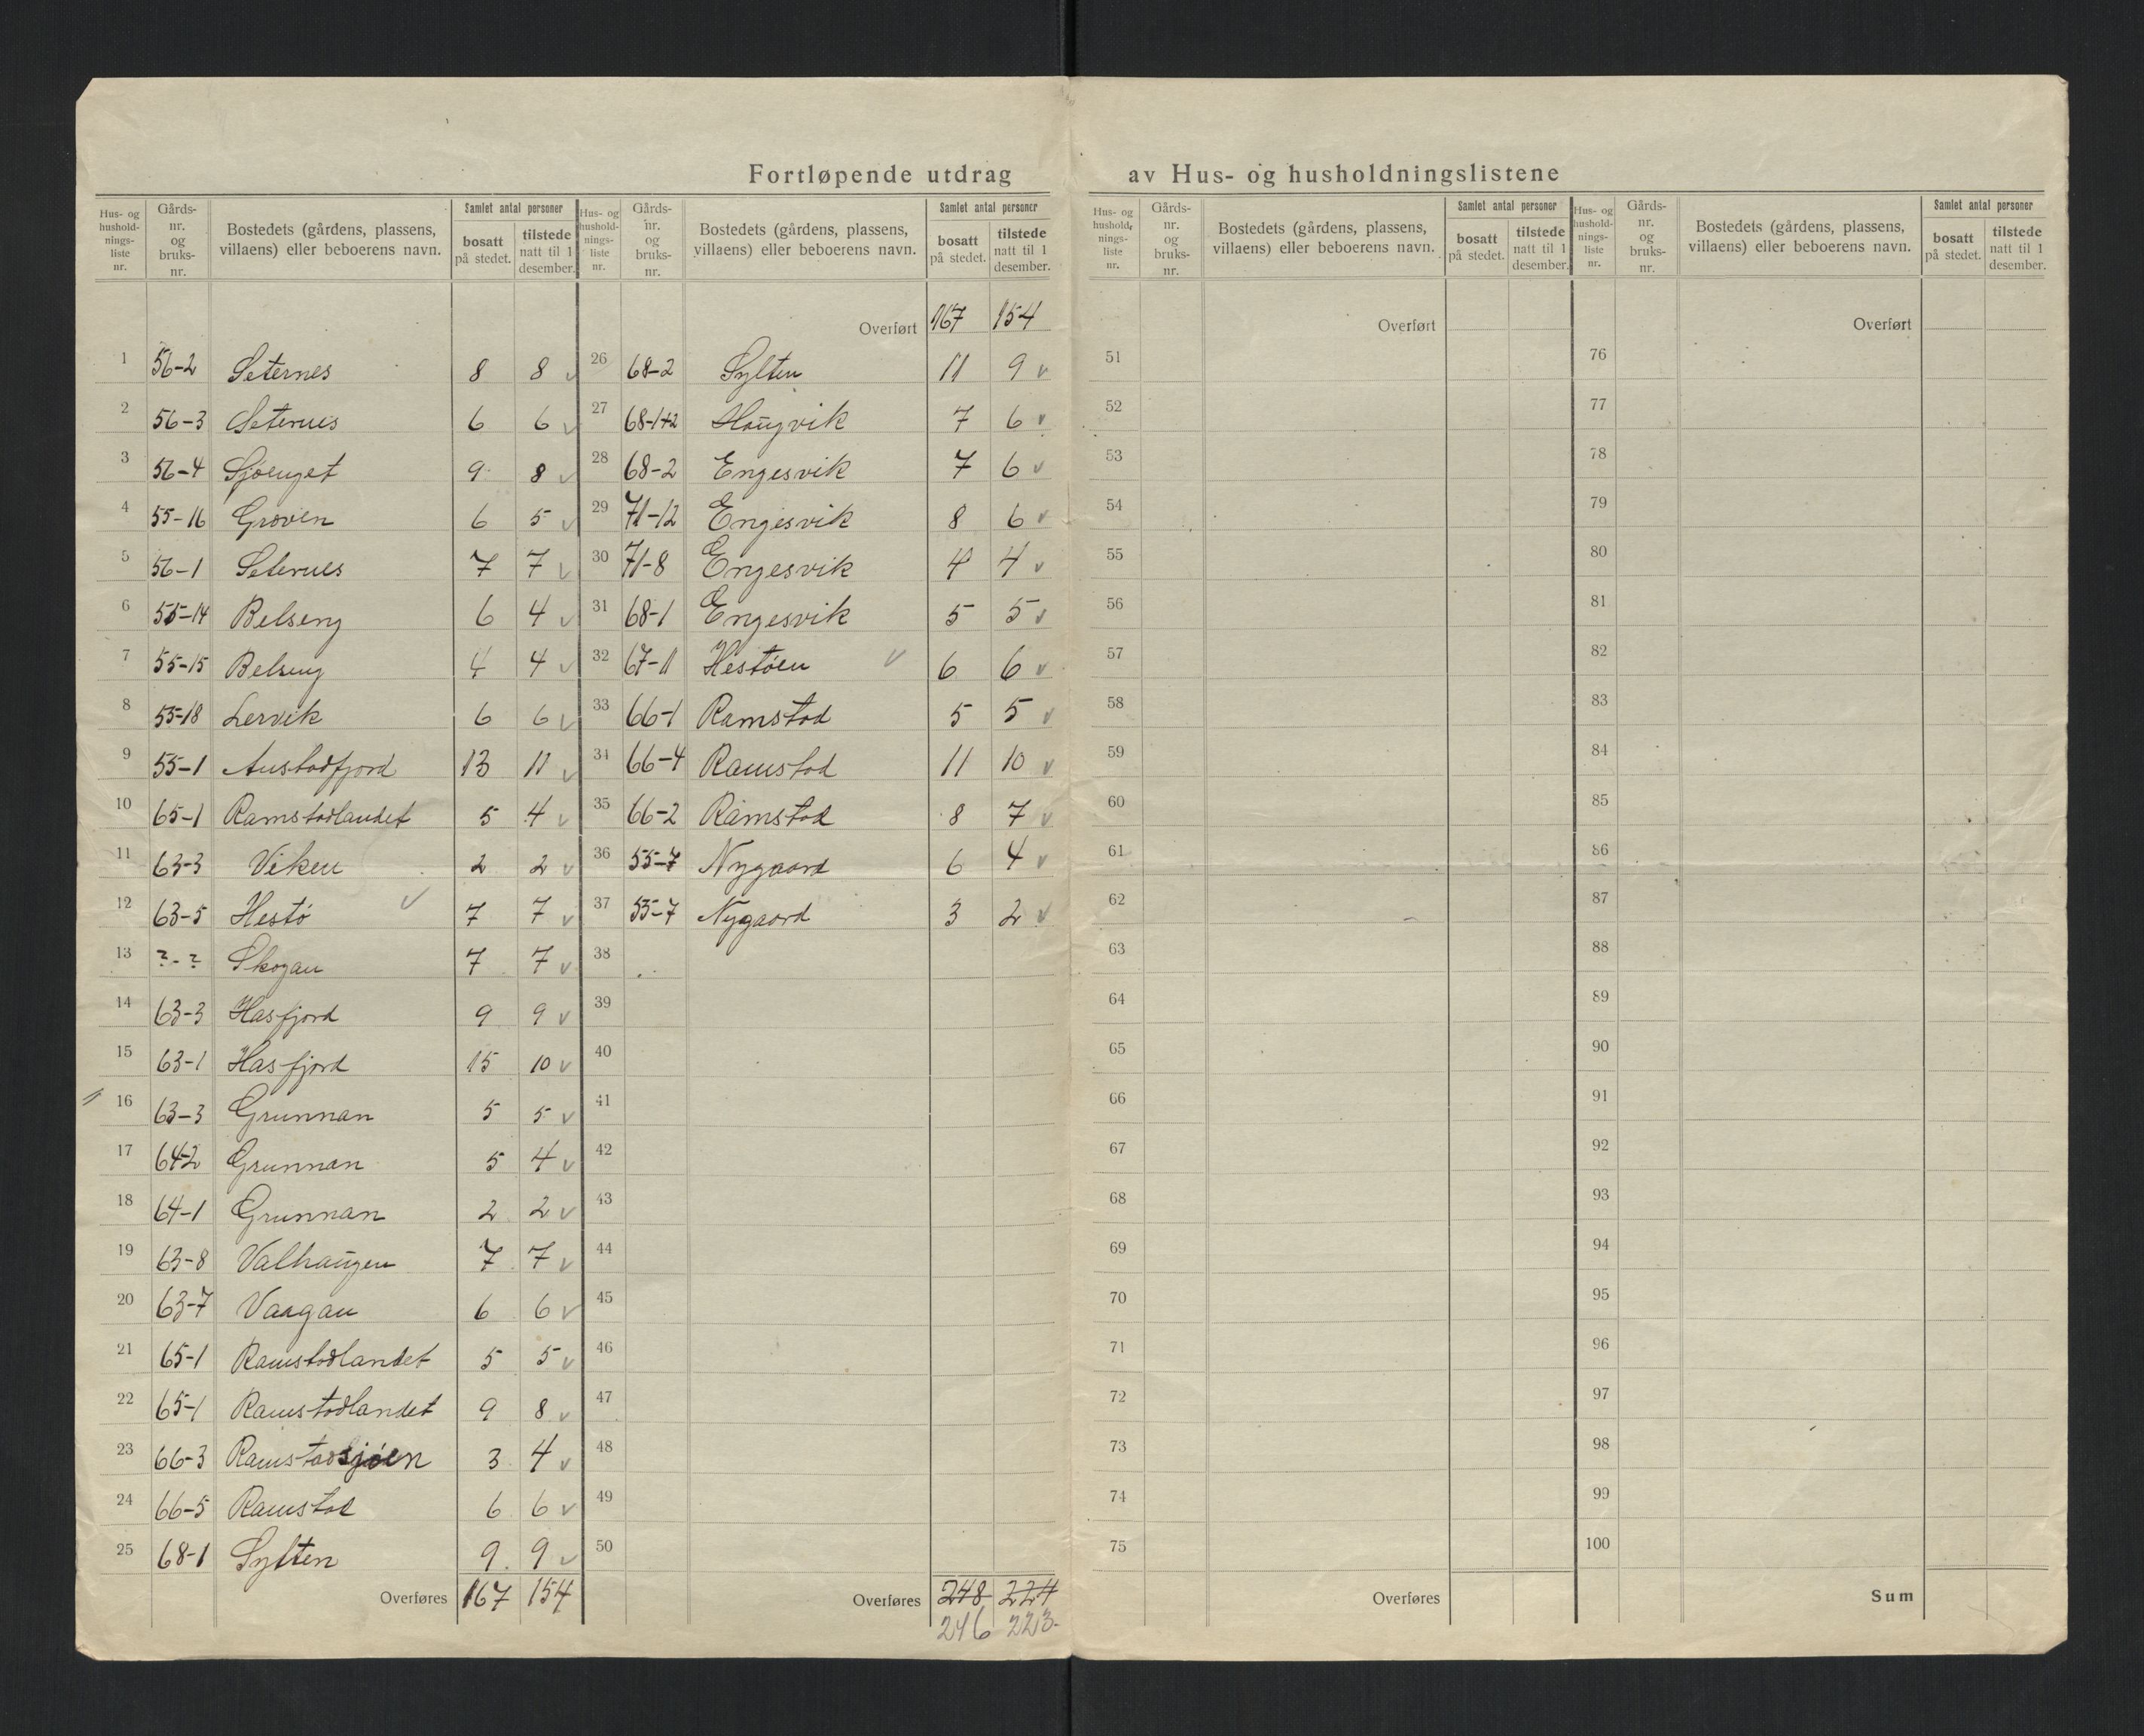 Fortløpende utdrag av Hus- og husholdningslistene
Hus- og hushold-nings-liste nr. Gårds-nr. og bruks-nr. Bostedets (gårdens, plassens, villaens) eller beboerens navn. Samlet antal personer bosatt på stedet. tilstede natt til 1 desember.
1 56-2 Seternes 8 8 v
2 56-3 Seternes 6 6 v
3 56-4 Sjöenget 9 8 v
4 55-16 Groven 6 5 v
5 56-1 Seternes 7 7 v
6 55-14 Belseng 6 4 v
7 55-15 Belseng 4 4 v
8 55-18 Lervik 6 6 v
9 55-1 Austadfjord 13 11 v
10 65-1 Ramstadlandet 5 4 v
11 63-3 Viken 2 2 v
12 63-5 Hestö v 7 7 v
13 ?-? Skogan 7 7 v
14 63-3 Hasfjord 9 9 v
15 63-1 Hasfjord 15 10 v
16 63-3 Grunnan 5 5 v
17 64-2 Grunnan 5 4 v
18 64-1 Grunnan 2 2 v
19 63-8 Valhaugen 7 7 v
20 63-7 Vaagan 6 6 v
21 65-1 Ramstadlandet 5 5 v
22 65-1 Ramstadlandet 9 8 v
23 66-3 Ramstadsjöen 3 4 v
24 66-5 Ramstad 6 6 v
25 68-1 Sylten 9 9 v
Overføres 167 154
Hus- og hushold-nings-liste nr. Gårds-nr. og bruks-nr. Bostedets (gårdens, plassens, villaens) eller beboerens navn. Samlet antal personer bosatt på stedet. tilstede natt til 1 desember.
Overført 167 154
26 68-2 Sylten 11 9 v
27 68-1+2 Haugvik 7 6 v
28 68-2 Engesvik 7 6 v
29 71-12 Engesvik 8 6 v
30 71-8 Engesvik 4 4 v
31 68-1 Engesvik 5 5 v
32 67-11 Hestöen v 6 6 v
33 66-1 Ramstad 5 5 v
34 66-4 Ramstad 11 10 v
35 66-2 Ramstad 8 7 v
36 55-7 Nygaard 6 4 v
37 55-7 Nygaard 3 2 v
38
39
40
41
42
43
44
45
46
47
48
49
50
Overføres 248 224
246 223
Hus- og hushold, nings-liste nr. Gårds-nr. og bruks-nr. Bostedets (gårdens, plassens, villaens) eller beboerens navn. Samlet antal personer bosatt på stedet. tilstede natt til 1 desember.
Overført
51
52
53
54
55
56
57
58
59
60
61
62
63
64
65
66
67
68
69
70
71
72
73
74
75
Overføres
Hus- og hushold-nings-liste nr. Gårds-nr. og bruks-nr. Bostedets (gårdens, plassens, villaens) eller beboerens navn. Samlet antal personer bosatt på stedet. tilstede natt til 1 desember.
Overført
76
77
78
79
80
81
82
83
84
85
86
87
88
89
90
91
92
93
94
95
96
97
98
99
100
Sum